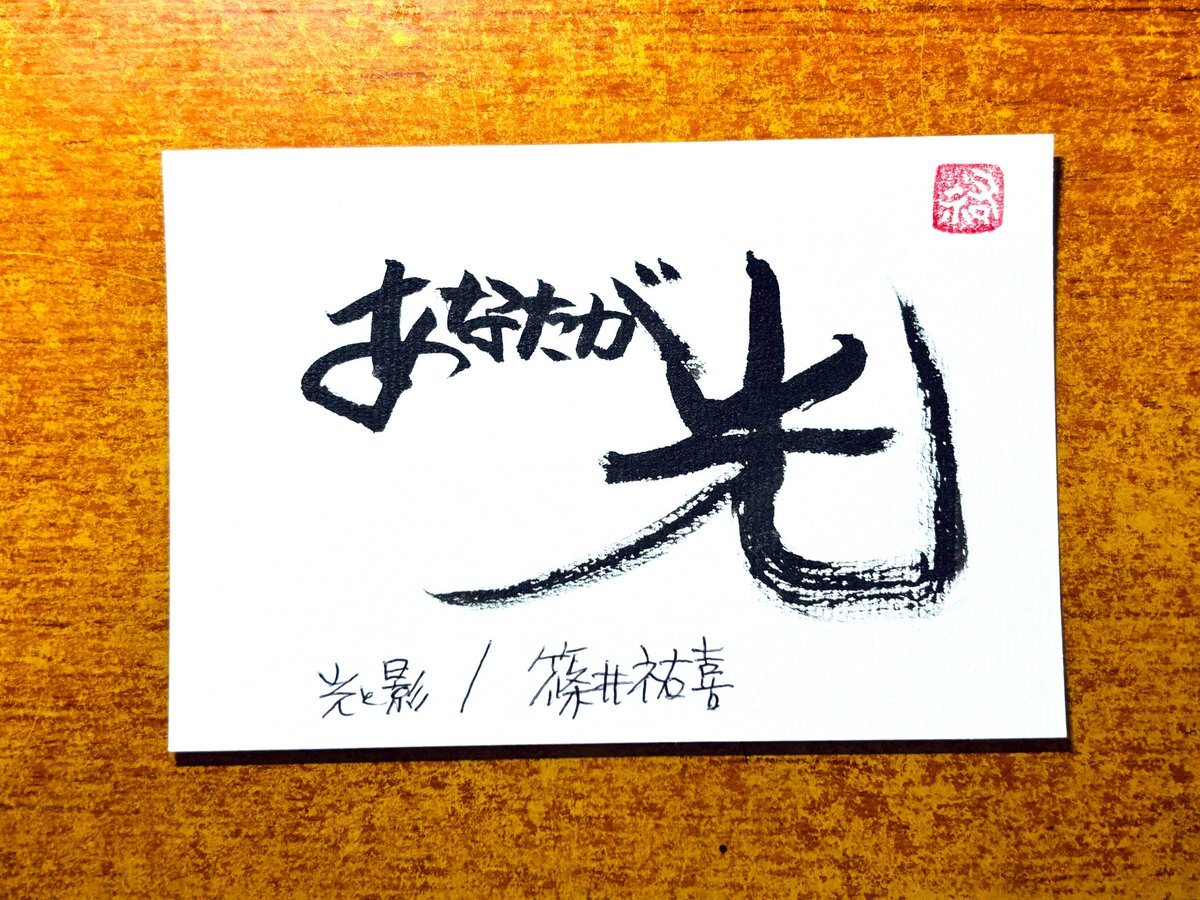 あなたが光
光と影 / 篠井祐喜